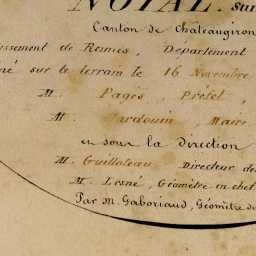 NOYAL sur
Canton de Chateaugiron
issement de Rennes, Département
né sur le terrain le 16 Novembre
M. Pagès, Préfet,
M. Hardouin, Maire
en sous la direction
M. Guilloteau, Directeur de
M. Lesné, Géomètre en chef
Par M. Gaboriaud, Géomètre du